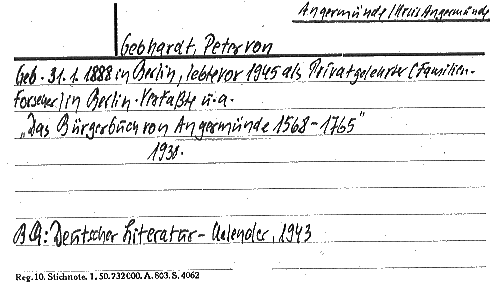 Angermünde / Kreis Angermünde
Gebhardt, Peter von
Geb. 31.1.1888 in Berlin, lebte vor 1945 als Privatgelehrter (Familien-
forscher) in Berlin. Verfaßte u.a.
„Das Bürgerbuch von Angermünde 1568-1765"
1931.
BQ: Deutscher Literatur-Kalender, 1943
Reg. 10. Stichnote. 1. 50. 732 000. A. 803. S. 4062